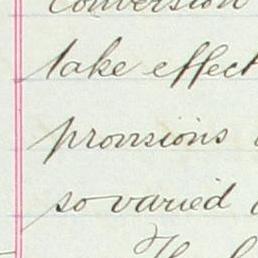 conversion
take effect
provisions
so varied